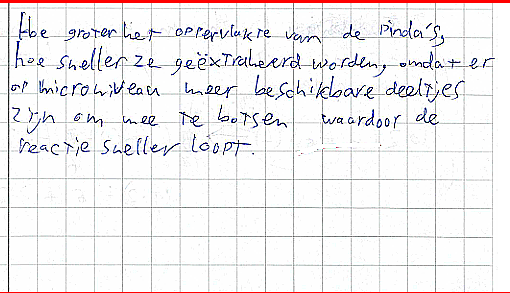 Hoe groter het oppervlakte van de pinda's,
hoe sneller ze geëxtraheerd worden, omdat er
op microniveau meer beschikbare deeltjes
zijn om mee te botsen waardoor de
reactie sneller loopt.